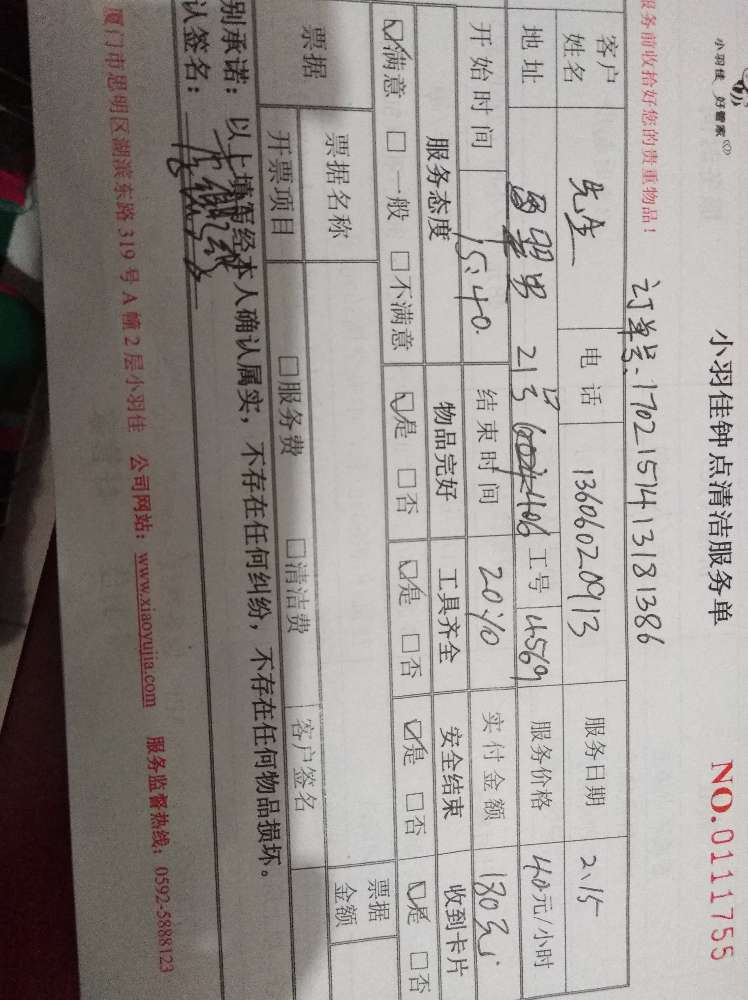 小羽佳 好管家
小羽佳钟点清洁服务单
NO.01111755
服务前收拾好您的贵重物品！
订单号：1702151413181386
客户姓名 先生 电话 13606020913 服务日期 2.15
地址 213 406 工号 4569 服务价格 40元/小时
开始时间 15:40. 结束时间 20:10 实付金额 180元
服务态度 物品完好 工具齐全 安全结束 收到卡片
☑满意 □一般 □不满意 ☑是 □否 ☑是 □否 ☑是 □否 ☑是 □否
票据 票据名称 票据金额
开票项目 □服务费 □清洁费 客户签名
别承诺：以上填写经本人确认属实，不存在任何纠纷，不存在任何物品损坏。
认签名：
厦门市思明区湖滨东路319号A幢2层小羽佳 公司网站：www.xiaoyujia.com 服务监督热线：0592-5888123